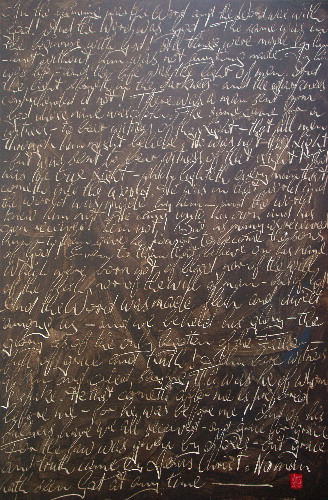 In the beginning was the Word and the Word was with
God - And the Word was God - The same was in
the beginning with God - All things were made by
him and without him was not any thing made - In him
was life and the life was the light of men - And
the light shineth in darkness and the darkness
comprehended it not - There was a man sent from
God whose name was John - The same came for a
witness - to bear witness of the Light - that all men
through him might believe - He was not that Light
but was sent to bear witness of that Light - That
was the true Light - which lighteth every man that
cometh into the world - He was in the world
and the world was made by him and the world
knew him not - He came unto his own and his own
received him not - But as many as received
him to them gave he power to become the sons
of God - even to them that believe on his name
Which were born not of blood nor of the will of
the flesh nor of the will of man but of God
And the Word was made flesh and dwelt
among us - and we beheld his glory - the
glory as of the only begotten of the Father
full of grace and truth - John bare witness
of him and cried saying this was he of whom
I spake - He that cometh after me is preferred
before me - for he was before me - And of his
fulness have we all received - and grace for grace
For the law was given by Moses - but grace
and truth came by Jesus Christ - No man
hath seen God at any time